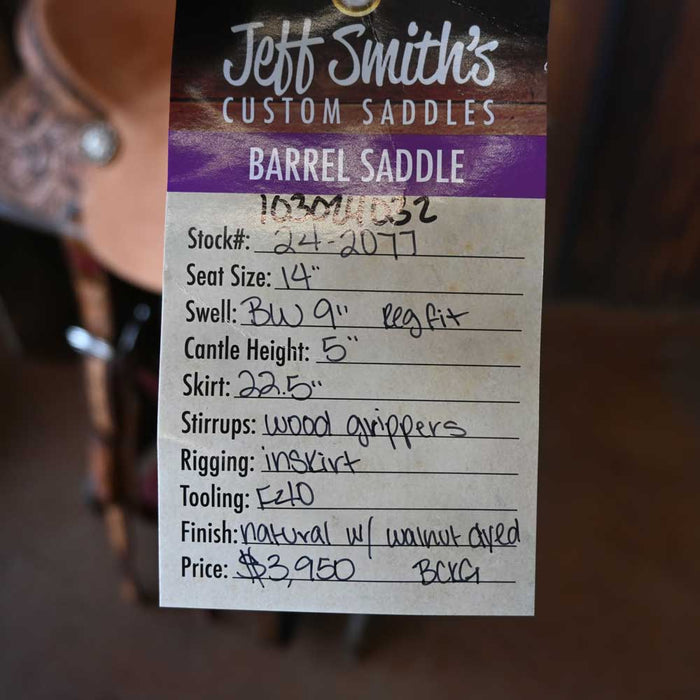 Jeff Smith's
CUSTOM SADDLES
BARREL SADDLE
Stock#: 24-2077
Seat Size: 14"
Swell: BW 9" Reg fit
Cantle Height: 5"
Skirt: 22.5"
Stirrups: wood grippers
Rigging: inskirt
Tooling: F40
Finish: natural w/ walnut dyed
Price: $3,950 BCKG